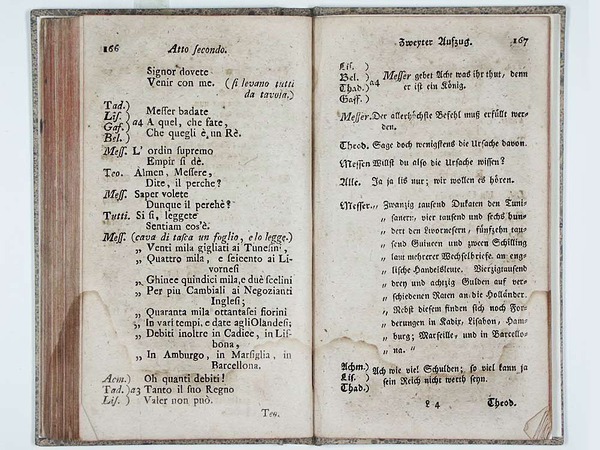 166 Atto secondo.
Signor dovete
Venir con me. (si levano tutti
da tavola.)
Tad.)
Lis.) Messer badate
Gaf.) a4 A quel, che fate,
Bel.) Che quegli è, un Rè.
Mess. L' ordin supremo
Empir si dè.
Teo. Almen, Messere,
Dite, il perche?
Mess. Saper volete
Dunque il perehè?
Tutti. Si si, leggete
Sentiam cos'è.
Mess. (cava di tasca un foglio, e lo legge.)
„ Venti mila gigliati ai Tunesini,
„ Quattro mila, e seicento ai Li-
vornesi
„ Ghinee quindici mila, e duè scelini
„ Per piu Cambiali ai Negozianti
Inglesi;
„ Quaranta mila ottantasei fiorini
„ In vari tempi, e date agli Olandesi;
„ Debiti inoltre in Cadice, in Lis-
bona,
„ In Amburgo, in Marsiglia, in
Barcellona.
Acm.) Oh quanti debiti!
Tad.) a3 Tanto il suo Regno
Lis.) Valer non può.
Teo.
Zweyter Aufzug. 167
Lis.)
Bel.) a4 Messer gebet Acht was ihr thut, denn
Thad.) er ist ein König.
Gaff.)
Messer. Der allerhöchste Befehl muß erfüllt wer-
den.
Theod. Sage doch wenigstens die Ursache davon.
Messer. Willst du also die Ursache wissen?
Alle. Ja ja lis nur; wir wollen es hören.
Messer. „ Zwanzig tausend Dukaten den Tuni-
„ sanern, vier tausend und sechs hun-
„ dert den Livornesern, fünfzehn tau-
„ send Guineen und zween Schilling
„ laut mehrerer Wechselbriefe an eng-
„ lische Handelsleute. Vierzigtausend
„ drey und achtzig Gulden auf ver-
„ schiedenen Raten an die Holländer.
„ Nebst diesem finden sich noch For-
„ derungen in Kadix, Lisabon, Ham-
„ burg; Marseille, und in Barcello-
„ na. "
Achm.)
Lis.) Ach wie viel Schulden; so viel kann ja
Thad.) sein Reich nicht werth seyn.
L 4 Theod.